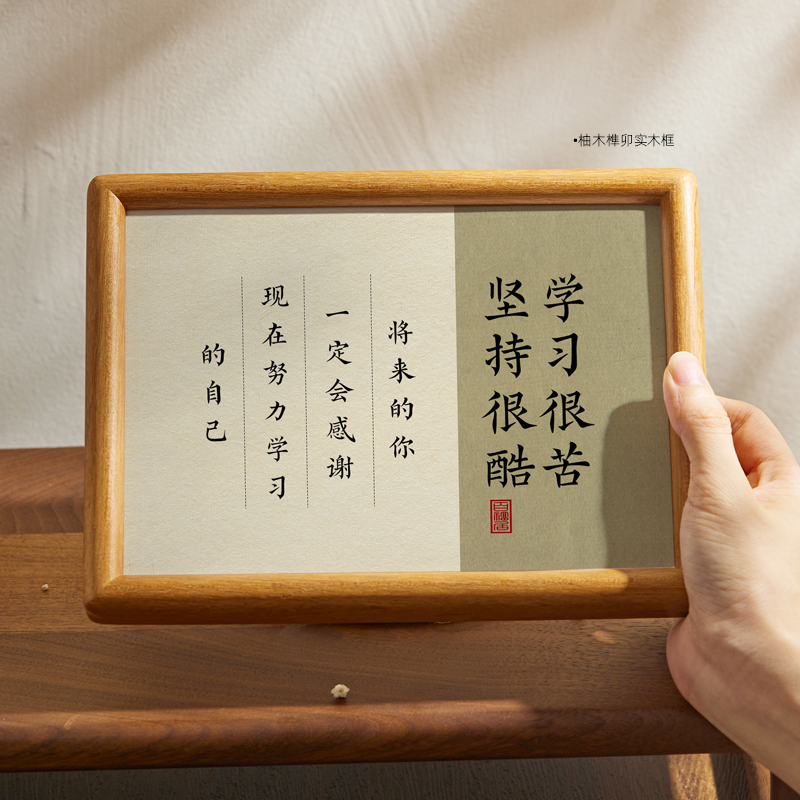 ▪柚木榫卯实木框
学习很苦
坚持很酷
将来的你
一定会感谢
现在努力学习
的自己